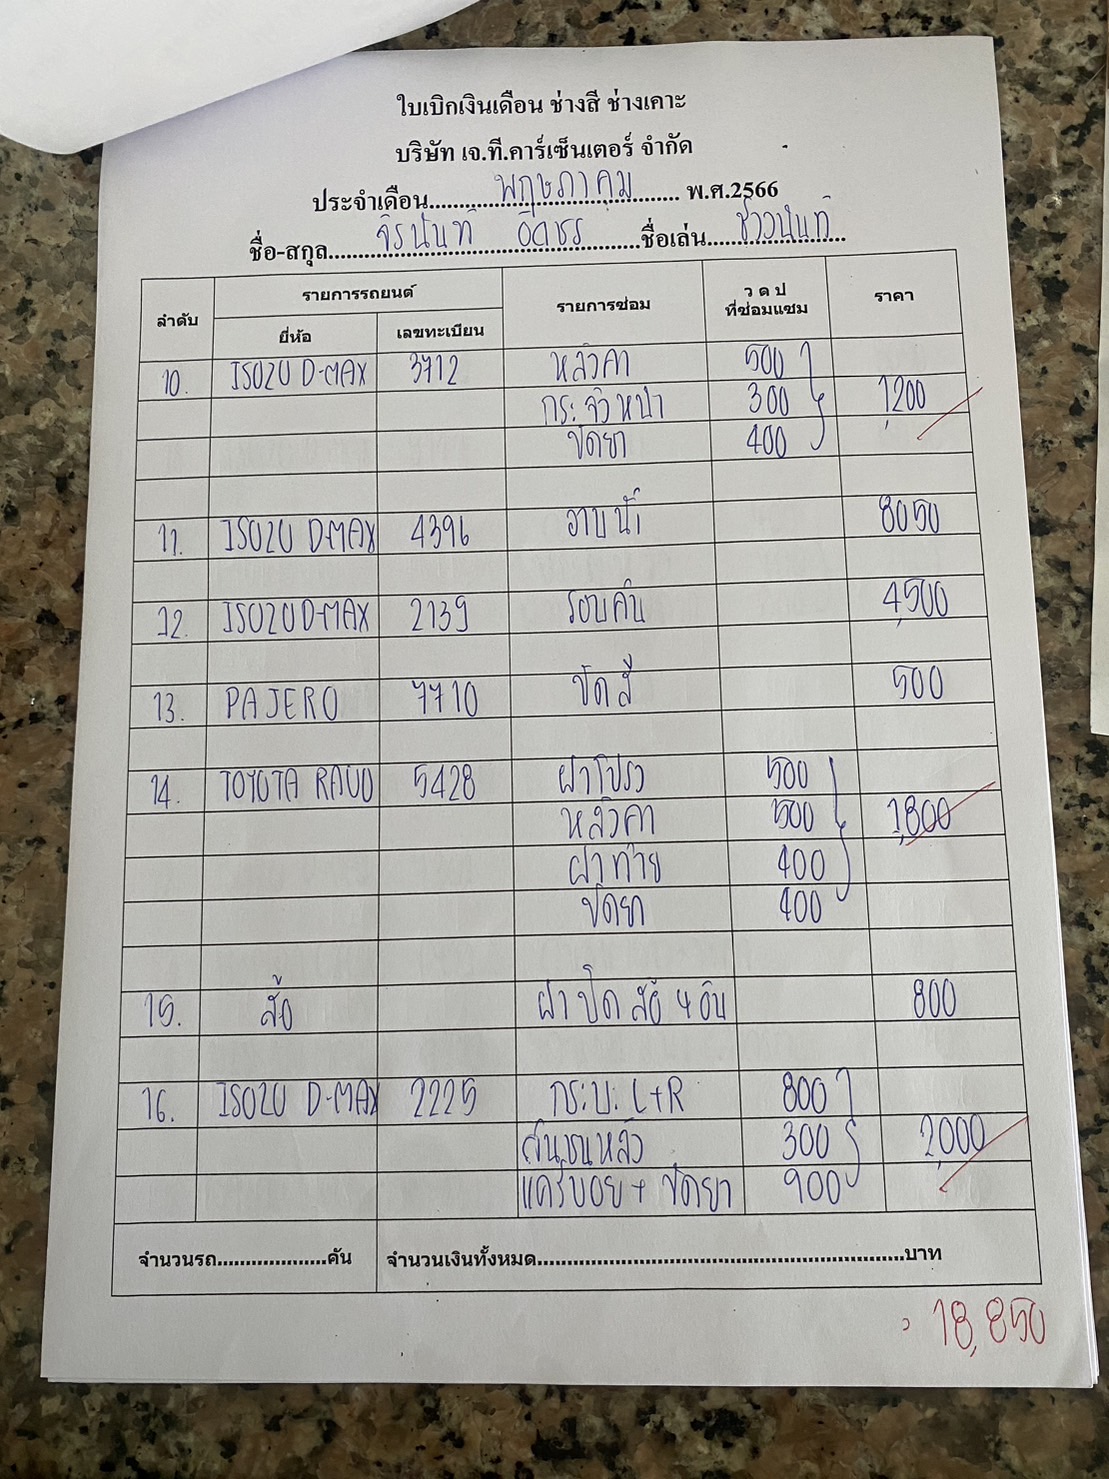 ใบเบิกเงินเดือน ช่างสี ช่างเคาะ
บริษัท เจ.ที.คาร์เซ็นเตอร์ จำกัด
ประจำเดือน....พฤษภาคม.... พ.ศ.2566
ชื่อ-สกุล....จิรนันท์....ชื่อเล่น....
ลำดับ รายการรถยนต์ รายการซ่อม ว ด ป ที่ซ่อมแซม ราคา
ยี่ห้อ เลขทะเบียน
10. ISUZU D-MAX 3712 หลังคา 500
กระจังหน้า 300 1,200
ขัดยา 400
11. ISUZU D-MAX 4396 อาบน้ำ 8050
12. ISUZU D-MAX 2139 รอบคัน 4,500
13. PAJERO 7710 ขัดสี 500
14. TOYOTA 5428 ฝาโปรง 500
หลังคา 500 1,800
ฝาท้าย 400
ขัดยา 400
15. ล้อ ฝาปิดล้อ 4 อัน 800
16. ISUZU D-MAX 2225 กระบะ L+R 800
กันชนหลัง 300 2,000
แค๊ปบอย + ขัดยา 900
จำนวนรถ....................คัน จำนวนเงินทั้งหมด....................บาท
18,850